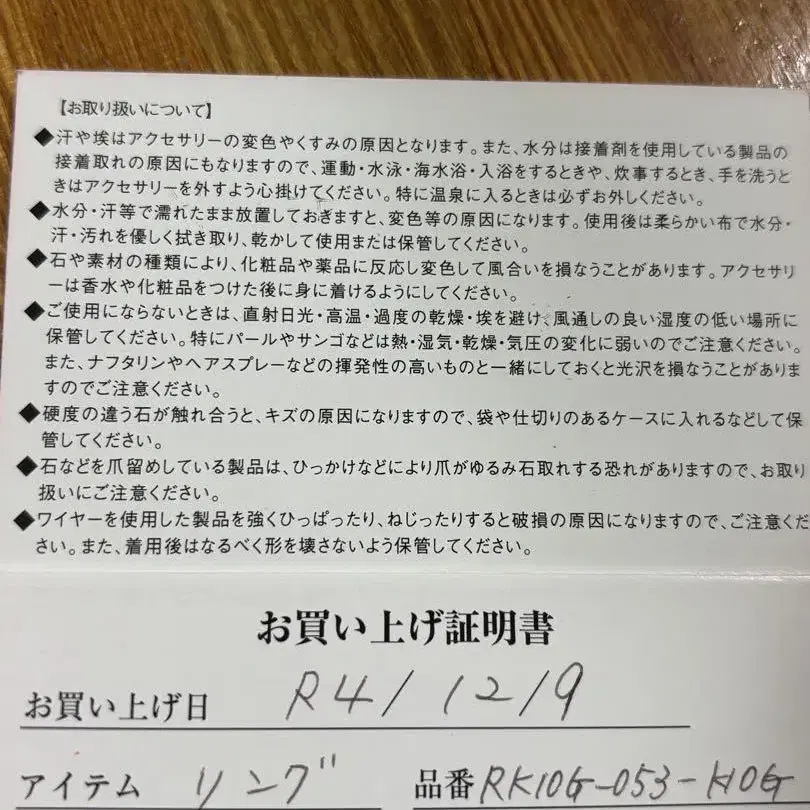 【お取り扱いについて】
◆汗や埃はアクセサリーの変色やくすみの原因となります。また、水分は接着剤を使用している製品の
接着取れの原因にもなりますので、運動・水泳・海水浴・入浴をするときや、炊事するとき、手を洗うと
きはアクセサリーを外すよう心掛けてください。特に温泉に入るときは必ずお外しください。
◆水分・汗等で濡れたまま放置しておきますと、変色等の原因になります。使用後は柔らかい布で水分・
汗・汚れを優しく拭き取り、乾かして使用または保管してください。
◆石や素材の種類により、化粧品や薬品に反応し変色して風合いを損なうことがあります。アクセサリ
ーは香水や化粧品をつけた後に身に着けるようにしてください。
◆ご使用にならないときは、直射日光・高温・過度の乾燥・埃を避け、風通しの良い湿度の低い場所に
保管してください。特にパールやサンゴなどは熱・湿気・乾燥・気圧の変化に弱いのでご注意ください。
また、ナフタリンやヘアスプレーなどの揮発性の高いものと一緒にしておくと光沢を損なうことがありま
すのでご注意ください。
◆硬度の違う石が触れ合うと、キズの原因になりますので、袋や仕切りのあるケースに入れるなどして保
管してください。
◆石などを爪留めしている製品は、ひっかけなどにより爪がゆるみ石取れする恐れがありますので、お取り
扱いにご注意ください。
◆ワイヤーを使用した製品を強くひっぱったり、ねじったりすると破損の原因になりますので、ご注意くだ
さい。また、着用後はなるべく形を壊さないよう保管してください。
お買い上げ証明書
お買い上げ日 R4/12/9
アイテム リング 品番 RK10G-053-K10G